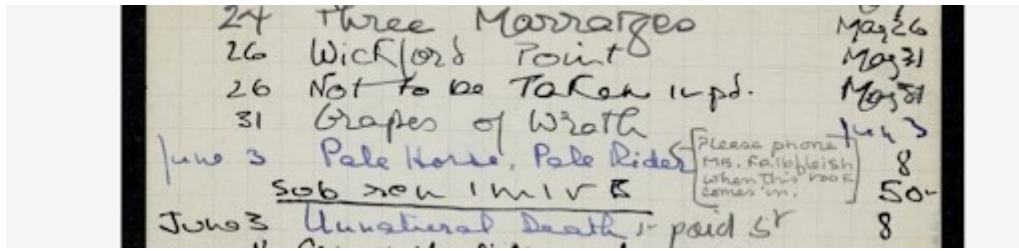 24 Three Marraiges May 26
26 Wickford Point May 31
26 Not to be Taken 1-pd. May 31
31 Grapes of Wrath Jun 3
June 3 Pale Horse, Pale Rider 8
Please phone
Mr.
when this book
comes in.
sub ren 1 m 1 v 50-
June 3 Unnatural Death 1- paid 8